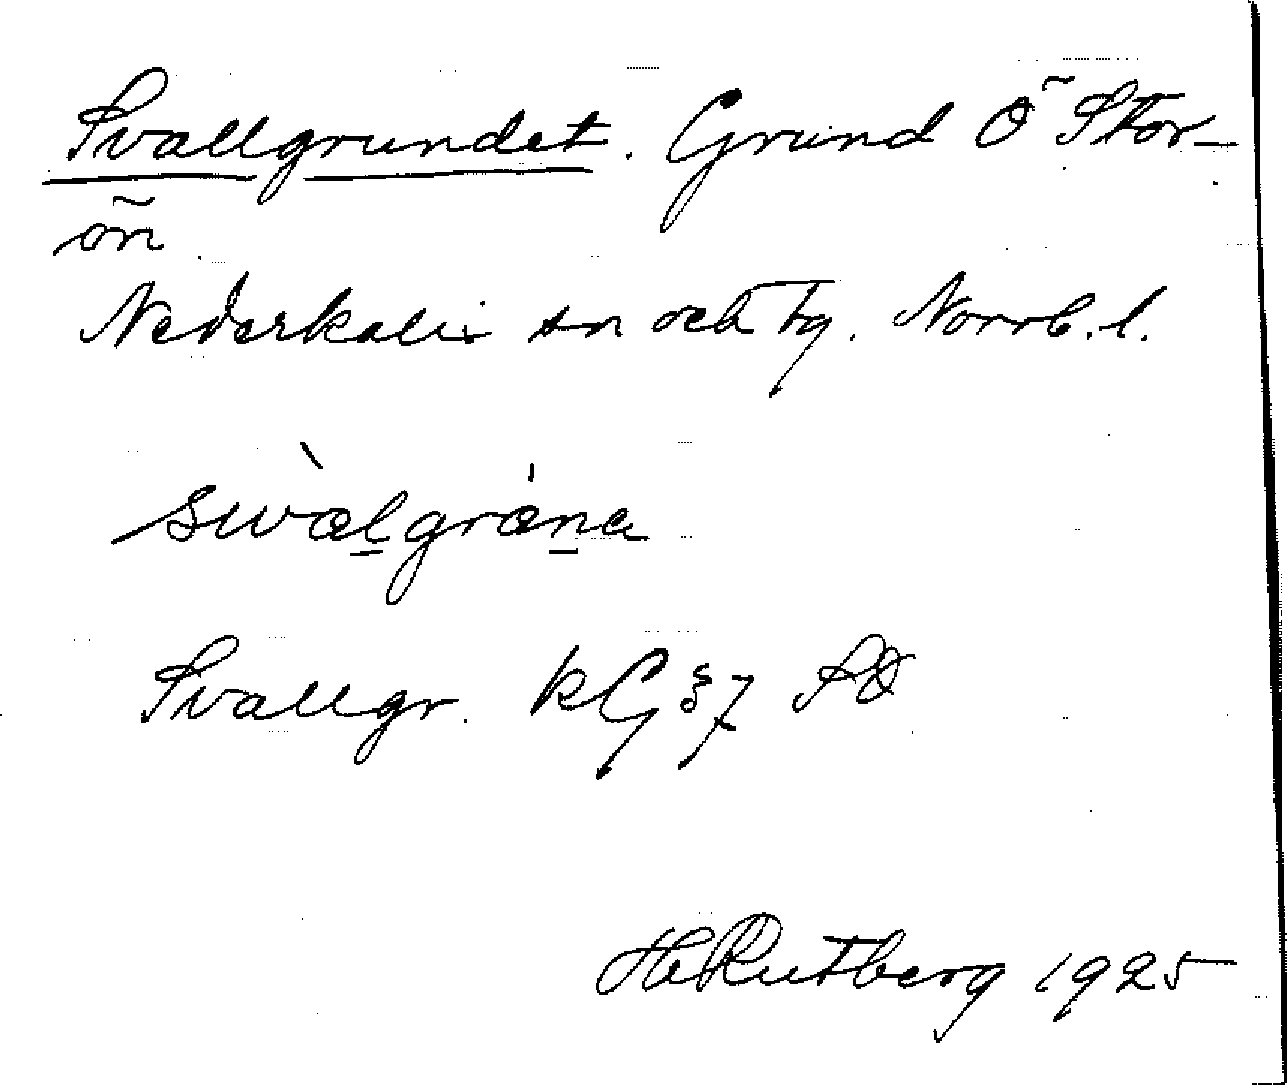 Svallgrundet. Grund Ö Stor-
ön
Nederkalix sn och tg. Norrb. l.
swàlgrána
Svallgr. kG § 7 SO
H Rutberg 1925